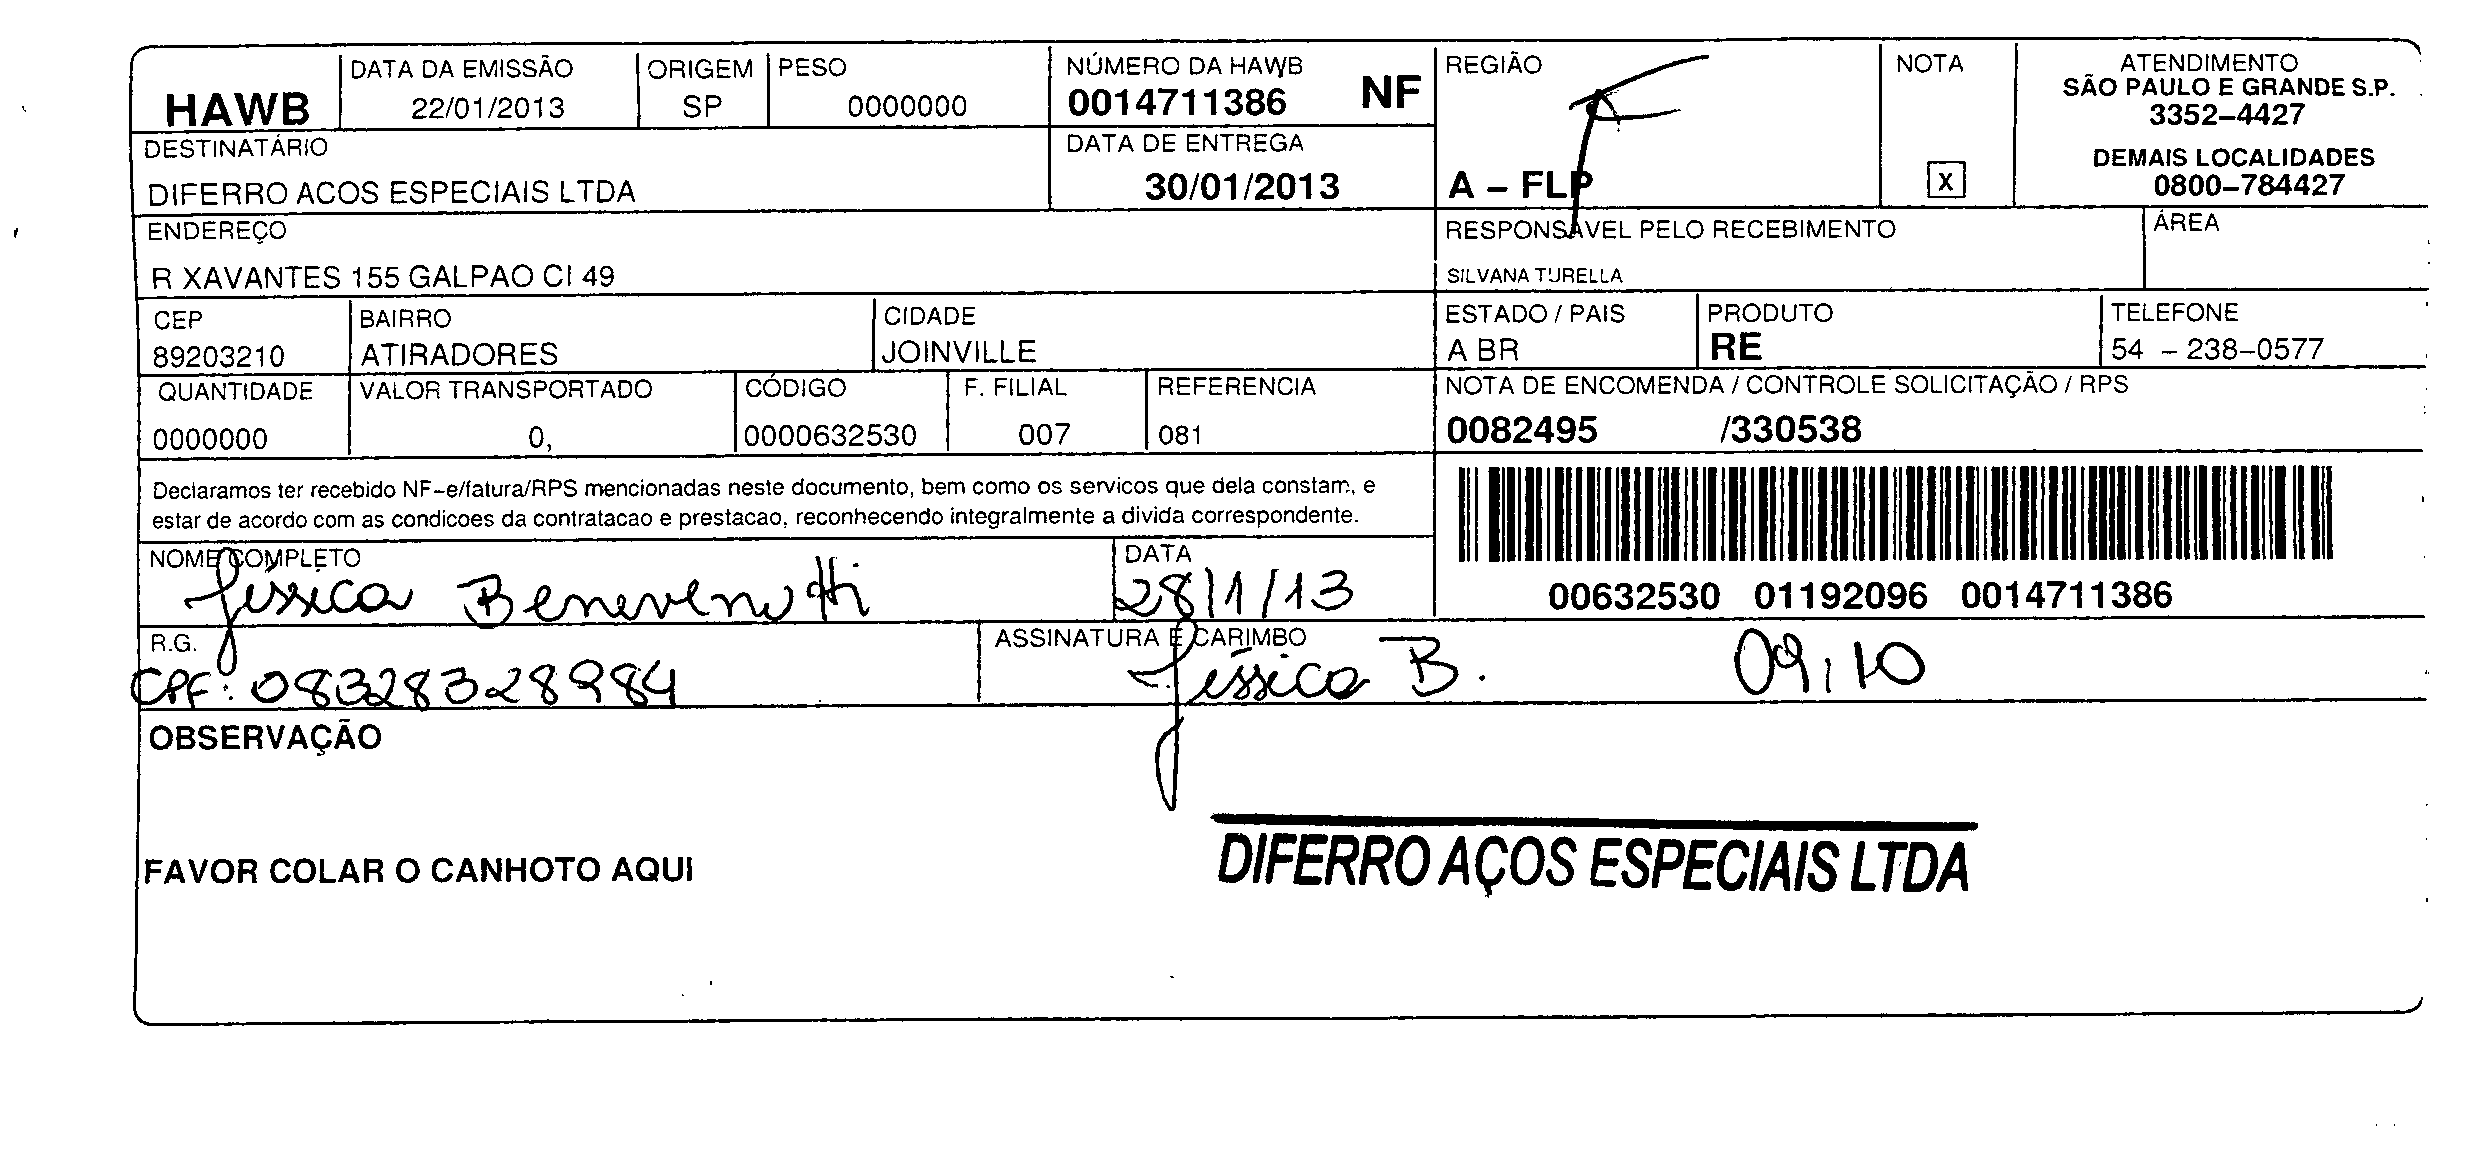 HAWB
DATA DA EMISSÃO
22/01/2013
ORIGEM
SP
PESO
0000000
NÚMERO DA HAWB
0014711386 NF
REGIÃO
A – FLP
NOTA
X
ATENDIMENTO
SÃO PAULO E GRANDE S.P.
3352–4427
DEMAIS LOCALIDADES
0800–784427
DESTINATÁRIO
DIFERRO ACOS ESPECIAIS LTDA
DATA DE ENTREGA
30/01/2013
ENDEREÇO
R XAVANTES 155 GALPAO CI 49
RESPONSÁVEL PELO RECEBIMENTO
SILVANA TURELLA
ÁREA
CEP
89203210
BAIRRO
ATIRADORES
CIDADE
JOINVILLE
ESTADO / PAIS
A BR
PRODUTO
RE
TELEFONE
54 – 238–0577
QUANTIDADE
0000000
VALOR TRANSPORTADO
0,
CÓDIGO
0000632530
F. FILIAL
007
REFERENCIA
081
NOTA DE ENCOMENDA / CONTROLE SOLICITAÇÃO / RPS
0082495 /330538
Declaramos ter recebido NF–e/fatura/RPS mencionadas neste documento, bem como os servicos que dela constam, e
estar de acordo com as condicoes da contratacao e prestacao, reconhecendo integralmente a divida correspondente.
00632530 01192096 0014711386
NOME COMPLETO
Jéssica Benevenutti
DATA
28/1/13
R.G.
CPF: 08328328984
ASSINATURA E CARIMBO
Jéssica B. 09:10
OBSERVAÇÃO
FAVOR COLAR O CANHOTO AQUI
DIFERRO AÇOS ESPECIAIS LTDA